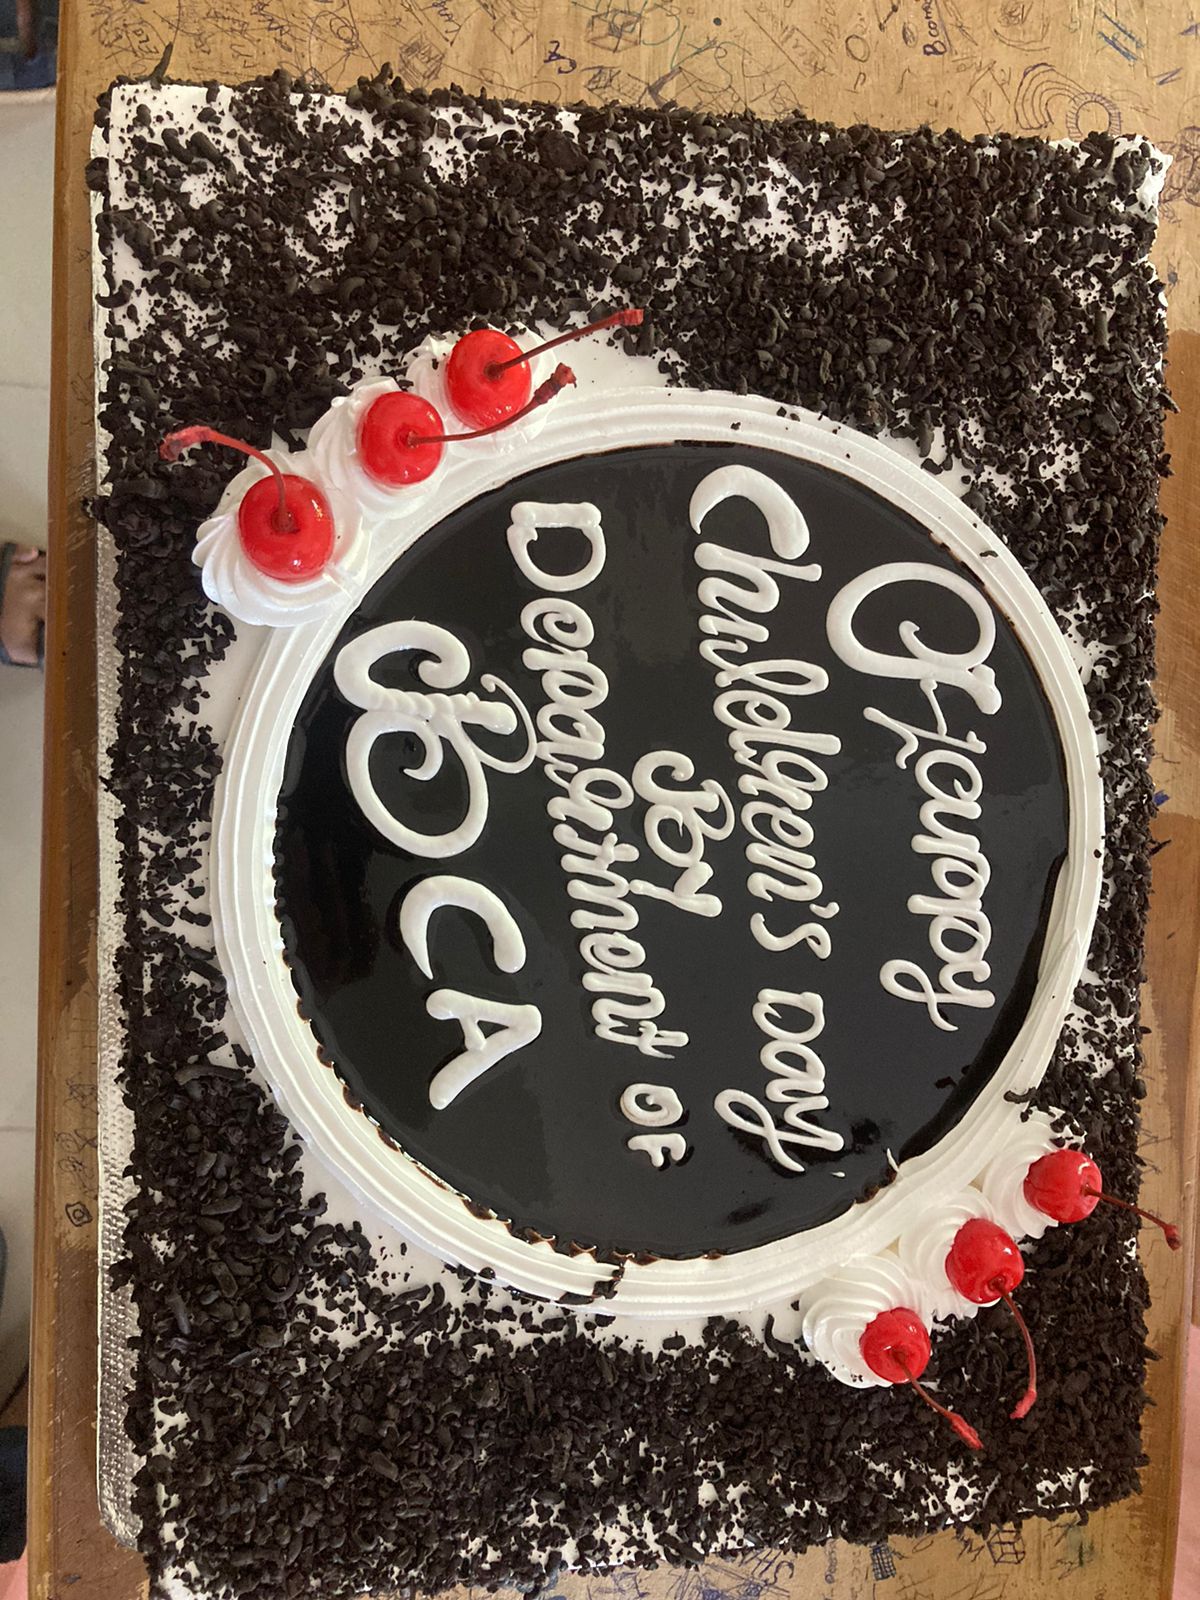 Happy
Children's Day
By
Department OF
BCA
Bcom